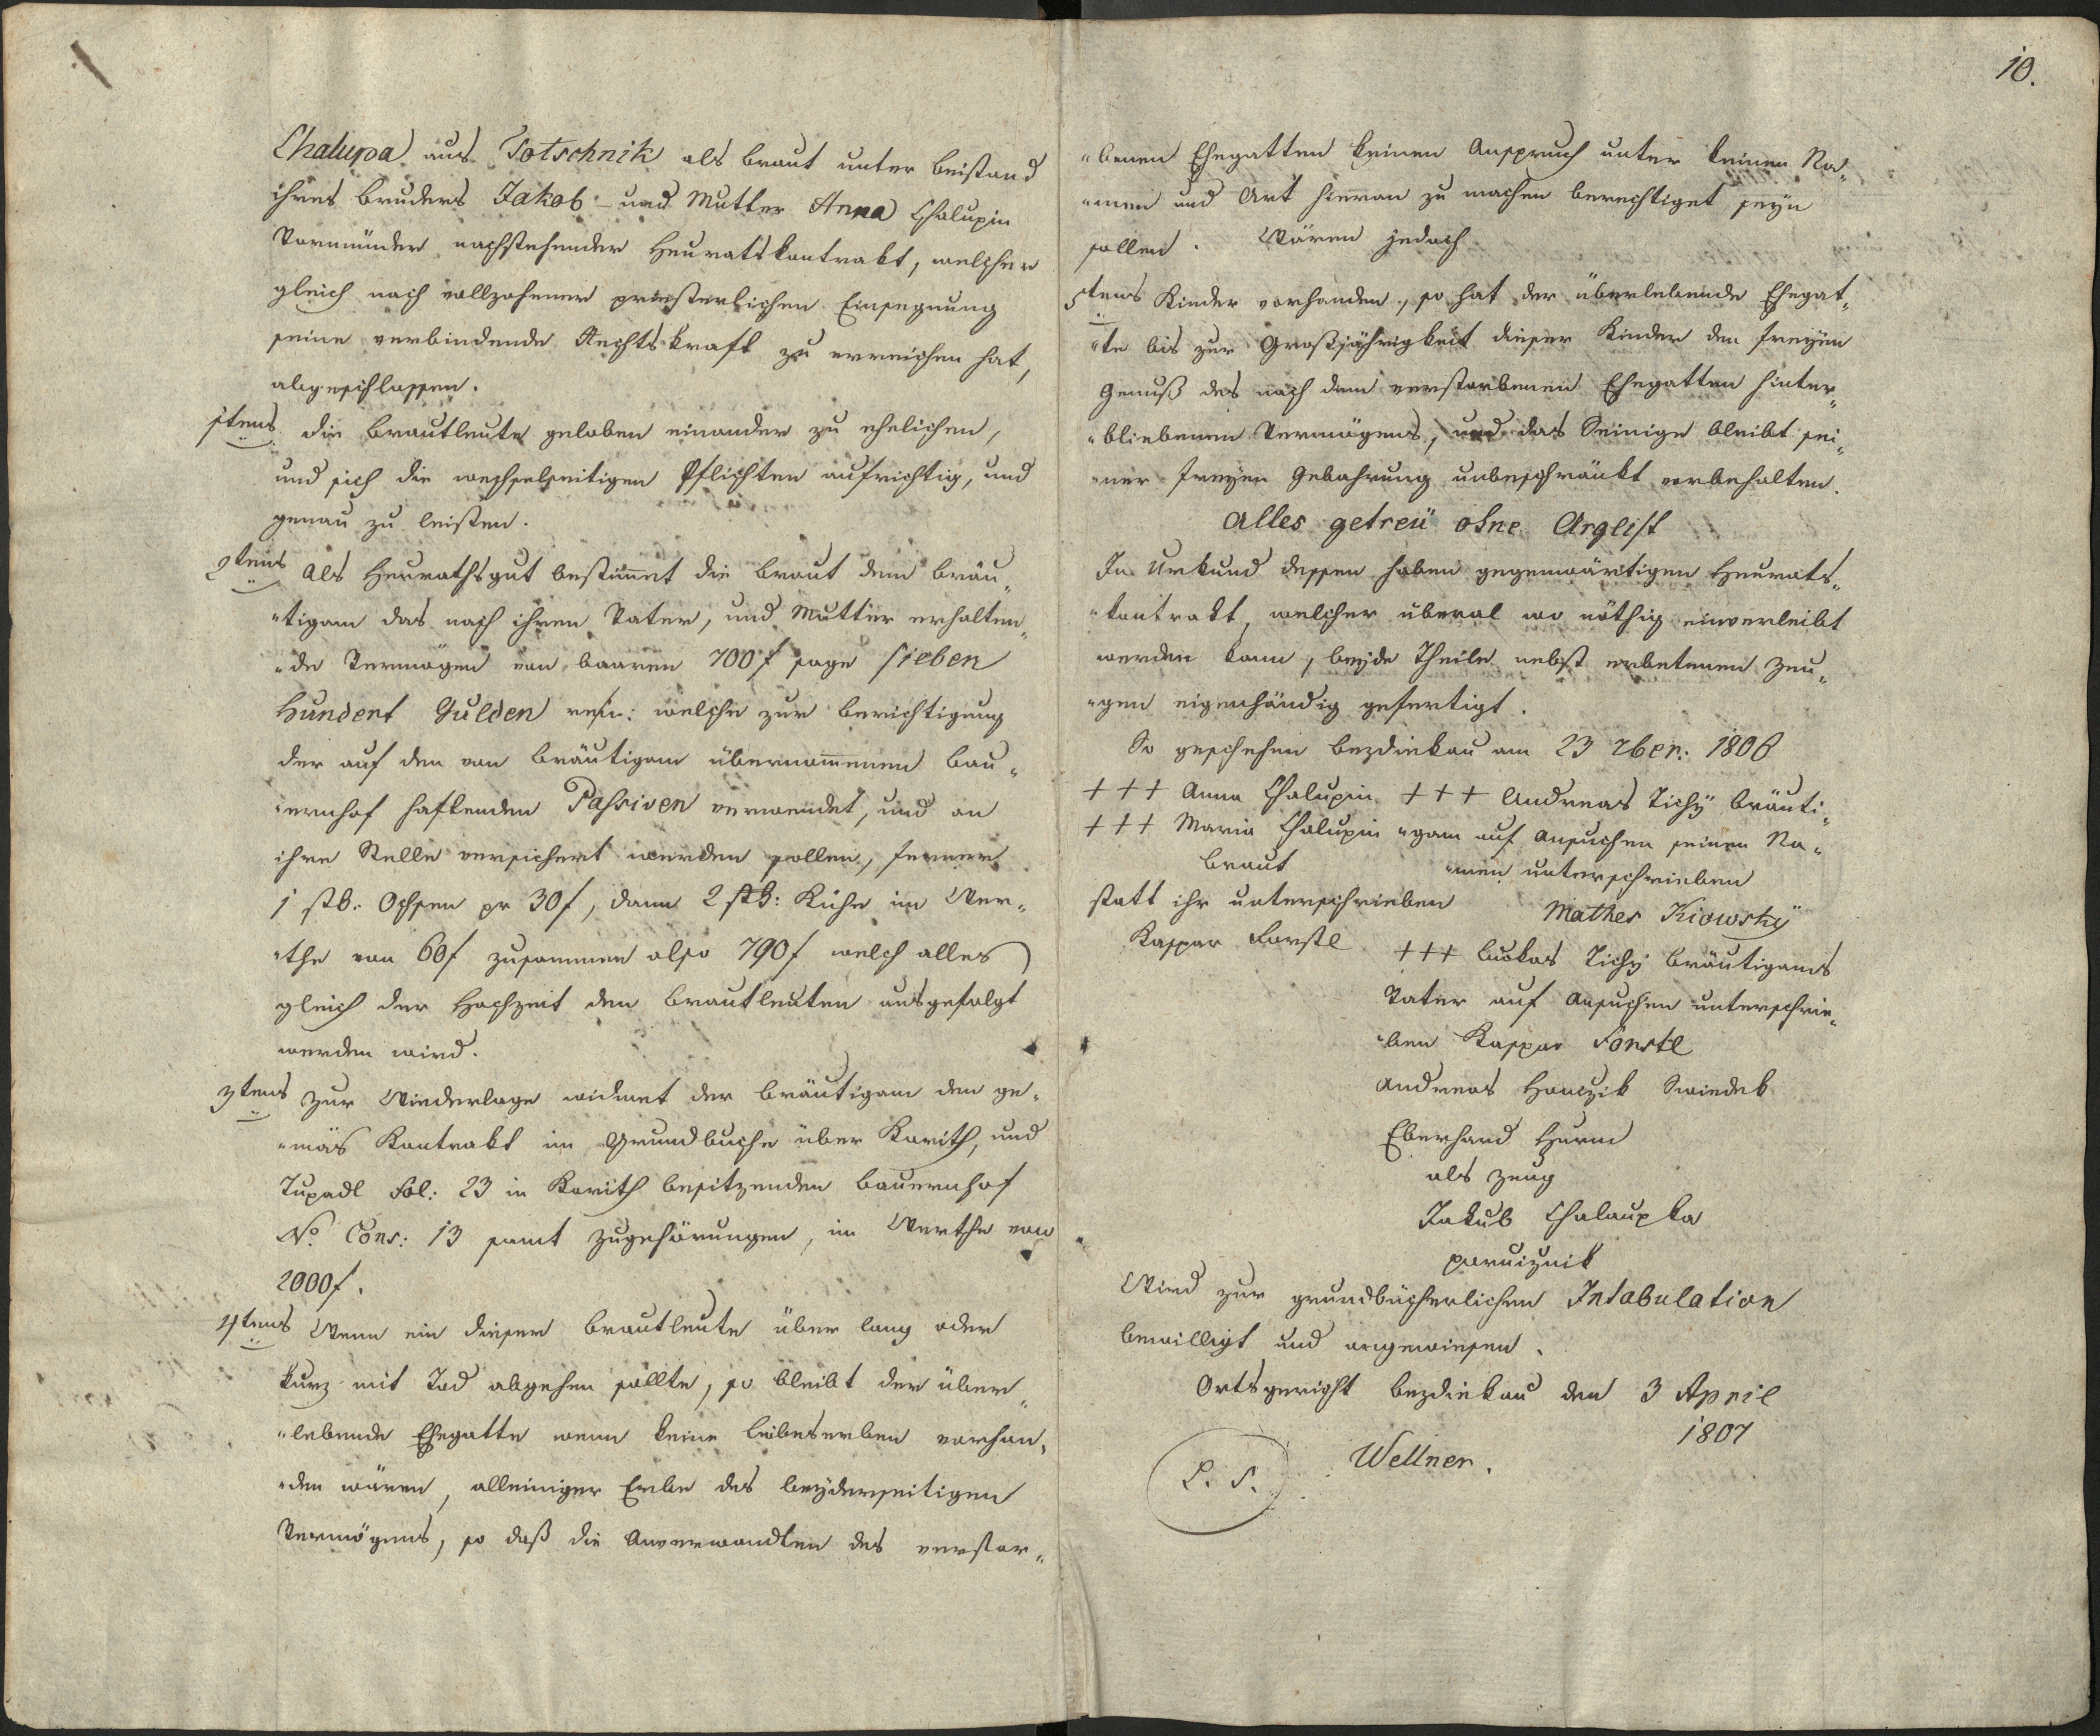 Chalupa aus Totschnik als Braut unter Beistand
ihres Bruders Jakob – und Mutter Anna Chalupin
Vormünder nachstehender Heuratskontrakt, welcher
gleich nach vollzohener priesterlichen Einsegnung
seine verbindende Rechtskraft zu erreichen hat,
abgeschlossen.
1tens die Brautleute geloben einander zu ehelichen,
und sich die wechselseitigen Pflichten aufrichtig, und
genau zu leisten.
2tens Als Heurathsgut bestim̄et die Braut dem Bräu„
„tigam das nach ihren Vater, und Mutter erhalten„
„de Vermögen von baaren 700 f sage sieben
Hundert Gulden welche zur Berichtigung
der auf den von Bräutigam übernom̄enen Bau„
„ernhof haftenden Passiven verwendet, und an
ihre Stelle versichert werden sollen, ferner
1 stk: Ochsen pr 30 f, dann 2 stk: Kühe im Wer„
„the von 60 f zusammen also 790 f welch alles
gleich der Hochzeit den Brautleuten ausgefolgt
werden wird.
3tens zur Wiederlage widmet der Bräutigam den ge„
„mäs Kontrakt im Grundbuche über Korith, und
Tupadl Fol: 23 in Korith besitzenden Bauernhof
No Cons: 13 samt Zugehörungen, im Werthe von
2000 f.
4tens Wenn ein dieser Brautleute über lang oder
kurz mit Tod abgehen sollte, so bleibt der über„
„lebende Ehegatte wenn keine Leibeserben vorhan„
„den wären, alleiniger Erbe des beyderseitigen
Vermögens, so daß die Anverwandten des verstor„
10.
„benen Ehegatten keinen Anspruch unter keinen Na„
„men und Art hievon zu machen berechtiget seyn
sollen. Wären jedoch
5tens Kinder vorhanden, so hat der überlebende Ehegat„
„te bis zur Großjährigkeit dieser Kinder den freyen
Genuß des nach dem verstorbenen Ehegatten hinter„
„bliebenen Vermögens, und das Seinige bleibt sei„
„ner freyen Gebahrung unbeschränkt vorbehalten.
Alles getreü ohne Arglist
In Urkund dessen haben gegenwärtigen Heurats„
„kontrakt, welcher überal wo nöthig einverleibt
werden kann, beyde Theile nebst erbetenen Zeu„
„gen eigenhändig gefertigt.
So geschehen Bezdiekau am 23 ber: 1806
+++ Anna Chalupin +++ Andreas Tichÿ Bräuti„
+++ Maria Chalupin „gam auf Ansuchen seinen Na„
Braut „men unterschrieben
statt ihr unterschrieben Mathes Kiowskÿ
Kaspar Forstl +++ Lukas Tichÿ Bräutigams
Vater auf Ansuchen unterschrie„
„ben Kaspar Forstl
Andreas Hanzik Swiedek
Eberhard Hurm
als Zeug
Jakub Chalaupka
porucznik
Wird zur grundbücherlichen Intabulation
bewilligt und angewiesen.
Ortsgericht Bezdiekau den 3 April
1807
L. S. Wellner.